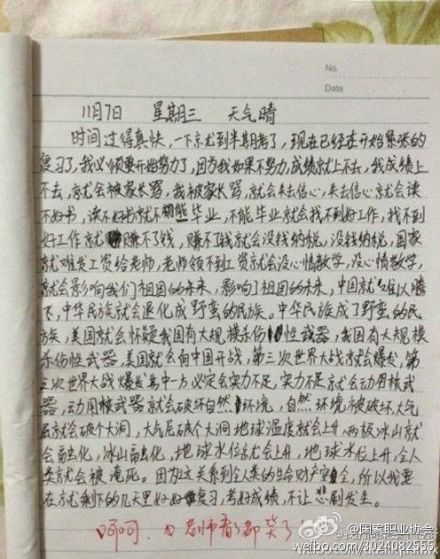 No
Date
11月7日 星期三 天气晴
时间过得真快,一下就到半期考了,现在已经在开始紧张的
复习了,我必须要开始努力了,因为我如果不努力,成绩就上不去,我成绩上
不去,就会被家长骂,我被家长骂,就会失去信心,失去信心就会读
不好书,读不好书就不能毕业,不能毕业就会找不到好工作,找不到
好工作就赚不了钱,赚不了钱就会没钱纳税,没钱纳税,国家
就难发工资给老师,老师领不到工资就会没心情教学,没心情教学,
就会影响我们祖国的未来,影响了祖国的未来,中国就难以腾
飞,中华民族就会退化成野蛮的民族。中华民族成了野蛮的民
族,美国就会怀疑我国有大规模杀伤性武器,我国有大规模
杀伤性武器,美国就会向中国开战,第三次世界大战就会爆发,第
三次世界大战爆发其中一方必定会实力不足,实力不足就会动用核武
器,动用核武器就会破坏自然环境,自然环境被破坏大气
层就会破个大洞,大气层破个大洞地球温度就会上升,两极冰山就
会融化,冰山融化,地球水位就会上升,地球水位上升,全人
类就会被淹死。因为这关系到全人类的生命财产安全,所以我要
在就剩下的几天里好好复习,考好成绩,不让悲剧发生。
呵呵,老师看了都笑了
@国家职业协会
weibo.com/3024082555